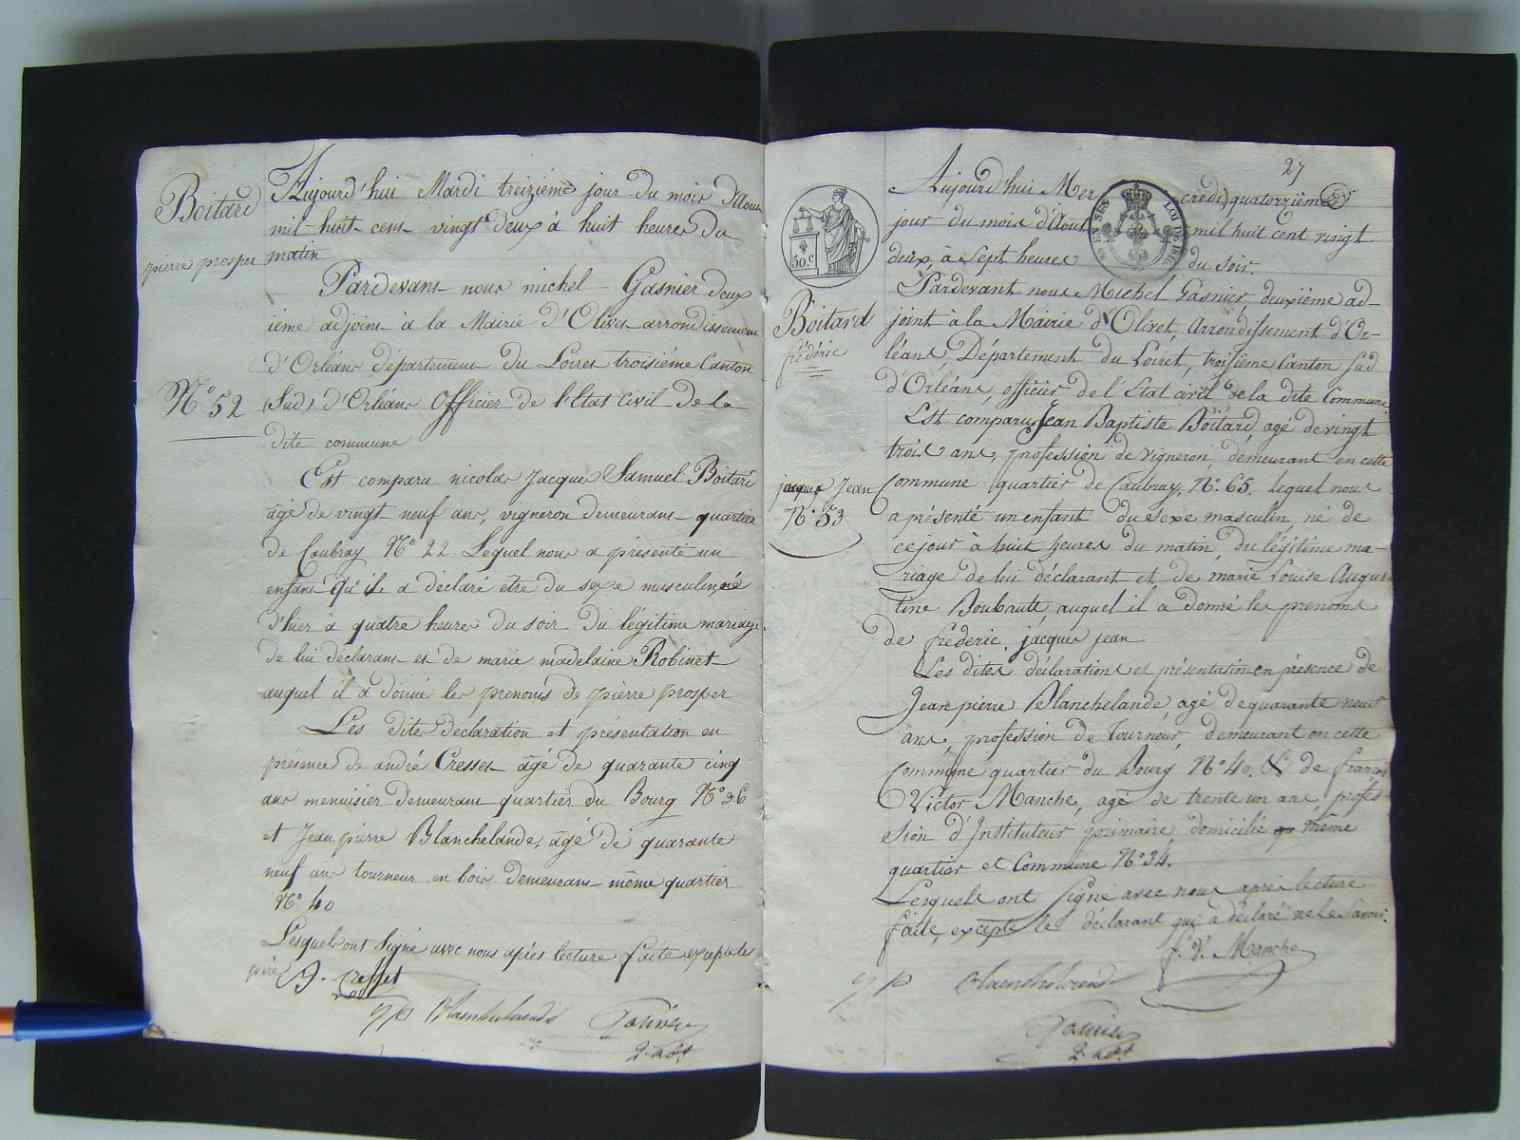 Boitard
pierre prosper
N° 52
Aujourd'hui Mardi treizième jour du mois d'Aout
mil huit cent vingt deux à huit heures du
matin
Pardevant nous michel Gasnier deux
ieme adjoint à la Mairie d'Olivet arrondissement
d'Orléans département du Loiret troisième Canton
(Sud) d'Orléans Officier de l'Etat Civil de la
dite commune
Est comparu nicolas Jacques Samuel Boitard
âgé de vingt neuf ans, vigneron demeurant quartier
de Caubray N° 22 Lequel nous a présenté un
enfant qu'il a déclaré être du sexe masculin né
d'hier a quatre heures du soir du légitime mariage
de lui déclarant et de marie madelaine Robinet
auquel il a donné les prenoms de pierre prosper
Les dites déclaration et présentation en
présence de andré Cresset âgé de quarante cinq
ans menuisier demeurant quartier du Bourg N° 36
et Jean pierre Blanchelande, âgé de quarante
neuf ans tourneur en bois demeurant même quartier
N° 40
Lesquels ont Signé avec nous après lecture faite excepté le
père
Cresset
J P Blanchelande
2. adjt
27
50 c
Boitard
frédéric
jacques Jean
N° 53
Aujourd'hui Mercredi quatorzième
jour du mois d'Aout mil huit cent vingt
deux, à Sept heures du soir.
Pardevant nous Michel Gasnier, deuxième ad-
joint à la Mairie d'Olivet, Arrondissement d'Or-
léans, Département du Loiret, troisième Canton Sud
d'Orléans, officier de l'Etat civil de la dite Commune.
Est comparu Jean Baptiste Boitard agé de vingt
trois ans, profession de vigneron, demeurant en cette
Commune quartier de Caubray, N° 65. lequel nous
a présenté un enfant du sexe masculin, né de
ce jour à huit heures du matin, du légitime ma-
riage de lui déclarant et de marie Louise Augus
tine Boubault, auquel il a donné les prenoms
de fréderic, jacques jean
Les dites déclaration et présentation en présence de
Jean pierre Blanchelande agé de quarante neuf
ans, profession de Tourneur, demeurant en cette
Commune quartier du Bourg N° 40. & de françois
Victor Manche, agé de trente un ans, profes-
sion d'Instituteur primaire domicilié même
quartier et Commune N° 34.
Lesquels ont signé avec nous après lecture
faite, excepté le déclarant qui a déclaré ne le Savoir.
f. V. Manche
J P Blanchelande
2. adjt